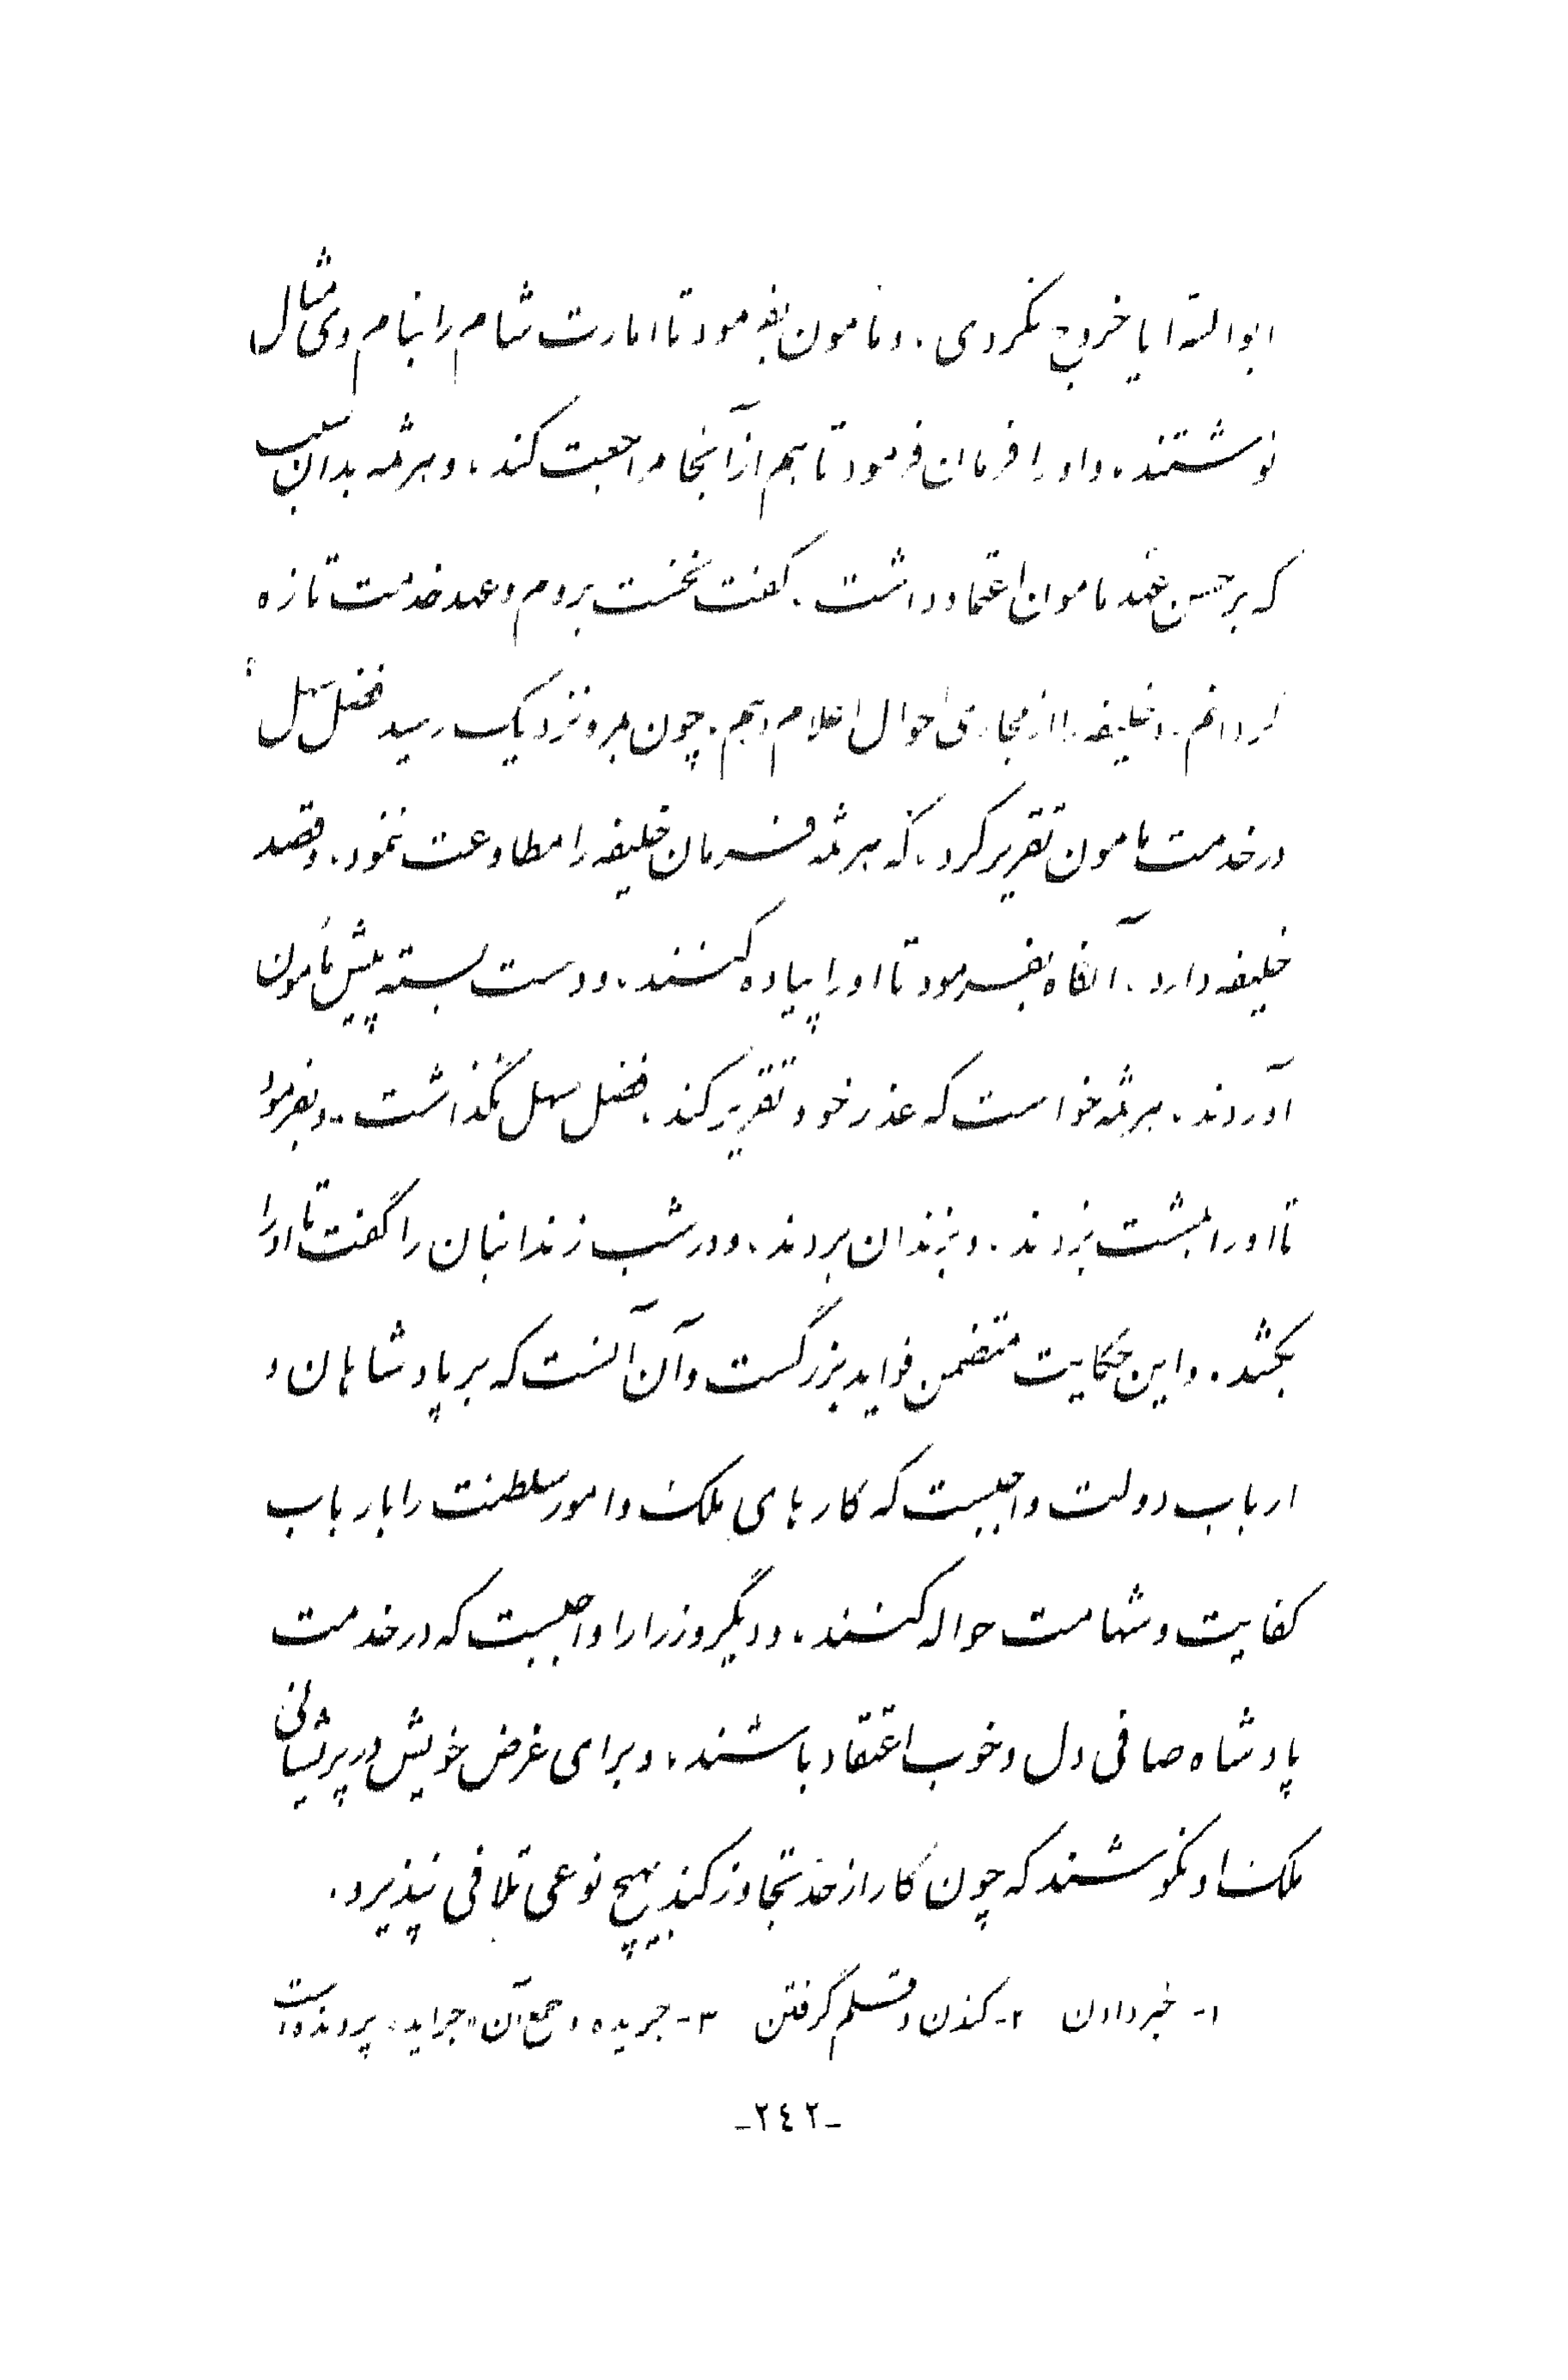 ابوالسرایا خروج نکردی. و مأمون بفرمود تا امارت شام را بنام وی مثال
نوشتند، و او را فرمان فرمود تا هم از آنجا مراجعت کند، و هرثمه بدان سبب
که بر حسن عهد مامون اعتماد داشت. گفت نخست بروم و عهد خدمت تازه
گردانم. و خلیفه را از مجاری احوال اعلام دهم. چون بمرو نزدیک رسید فضل سهل
در خدمت مامون تقریر کرد، که هرثمه فرمان خلیفه را مطاوعت ننمود. و قصد
خلیفه دارد. آنگاه بفرمود تا او را پیاده کنند، و دست بسته پیش مأمون
آوردند. هرثمه خواست که عذر خود تقریر کند، فضل سهل نگذاشت. و بفرمود
تا او را بمشت بزدند. و بزندان بردند، و در شب زندانبان را گفت تا او را
بکشد. و این حکایت متضمن فواید بزرگست و آن آنست که بر پادشاهان و
ارباب دولت واجبست که کارهای ملک و امور سلطنت را بارباب
کفایت و شهامت حواله کنند، و دیگر وزرا را واجبست که در خدمت
پادشاه صافی دل و خوب اعتقاد باشند، و برای غرض خویش در پریشانی
ملک او نکوشند که چون کار از حد تجاوز کند بهیچ نوعی تلافی نپذیرد.
۱- خبر دادن ۲- کندن و قلم گرفتن ۳- جریده و جمع آن «جراید» پرونده است
-۲٤۲-